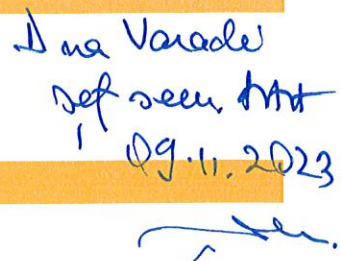 Dna Varadi
șef secu.
09.11.2023